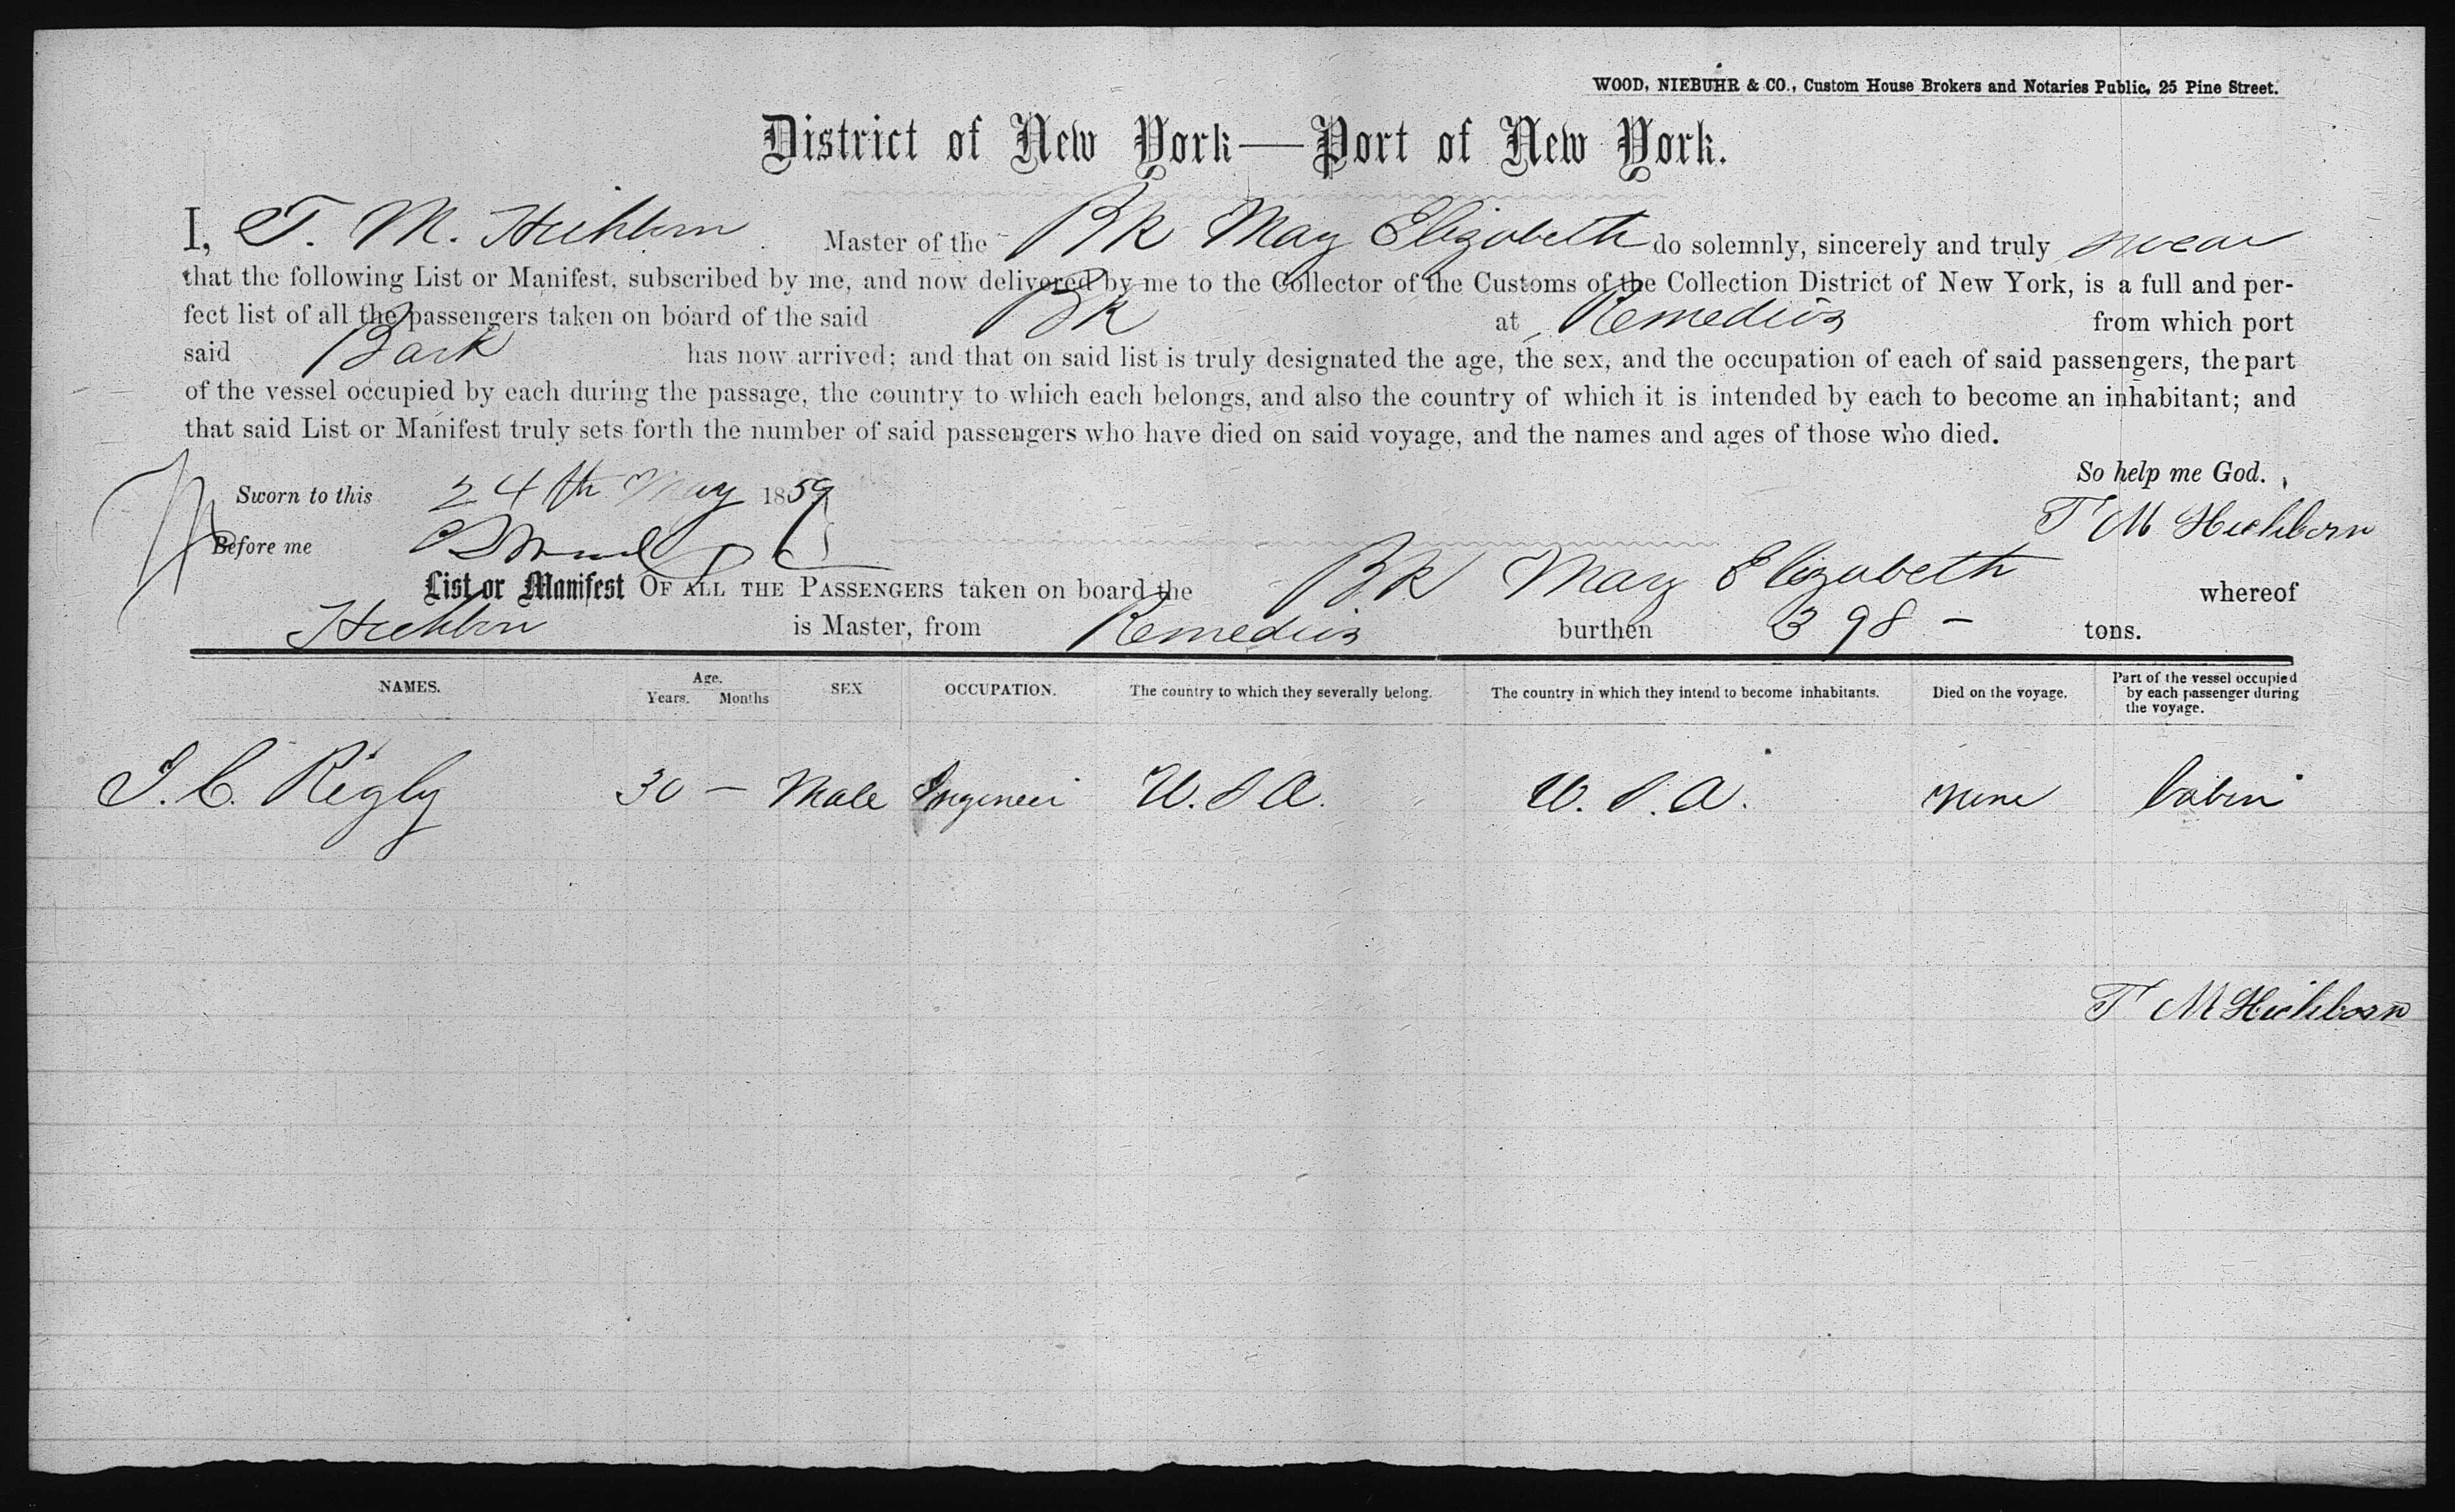 WOOD, NIEBUHR & CO., Custom House Brokers and Notaries Public, 25 Pine Street.
District of New York—Port of New York.
I, T. M. Hichborn Master of the Bk Mary Elizabeth do solemnly, sincerely and truly swear
that the following List or Manifest, subscribed by me, and now delivered by me to the Collector of the Customs of the Collection District of New York, is a full and per-
fect list of all the passengers taken on board of the said Bk at Remedios from which port
said Bark has now arrived; and that on said list is truly designated the age, the sex, and the occupation of each of said passengers, the part
of the vessel occupied by each during the passage, the country to which each belongs, and also the country of which it is intended by each to become an inhabitant; and
that said List or Manifest truly sets forth the number of said passengers who have died on said voyage, and the names and ages of those who died.
So help me God.
Sworn to this 24th May 1859
T M Hichborn
Before me
List or Manifest OF ALL THE PASSENGERS taken on board the Bk Mary Elizabeth whereof
Hichborn is Master, from Remedios burthen 398 - tons.
NAMES. Age. Years. Months SEX OCCUPATION. The country to which they severally belong. The country in which they intend to become inhabitants. Died on the voyage. Part of the vessel occupied by each passenger during the voyage.
J. C. Rigby 30 — Male Engineer U.S.A. U.S.A. none Cabin
T M Hichborn